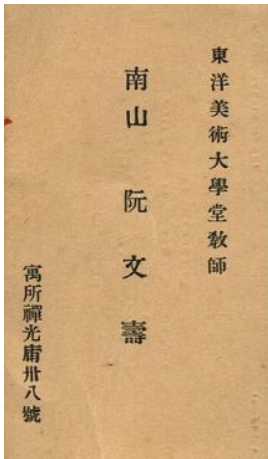 東洋美術大學堂教師
南山 阮文壽
寓所禪光庯卅八號